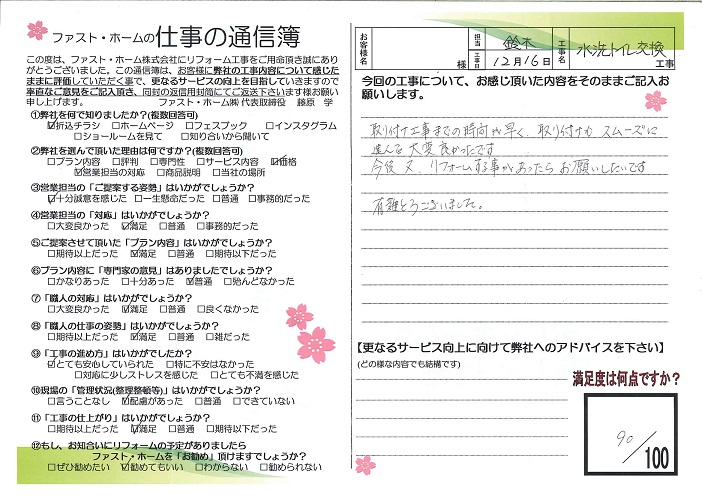 ファスト・ホームの仕事の通信簿
この度は、ファスト・ホーム株式会社にリフォーム工事をご用命頂き誠にあり
がとうございました。この通信簿は、お客様に弊社の工事内容について感じた
ままに評価していただく事で、更なるサービスの向上を目指していきますので
率直なご意見をご記入頂き、同封の返信用封筒にてご返送下さいます様お願い
申し上げます。 ファスト・ホーム㈱ 代表取締役 藤原 学
①弊社を何で知りましたか?(複数回答可)
☑折込チラシ □ホームページ □フェスブック □インスタグラム
□ショールームを見て □知り合いから聞いて
②弊社を選んで頂いた理由は何ですか?(複数回答可)
□プラン内容 □評判 □専門性 □サービス内容 ☑価格
☑営業担当の対応 □商品説明 □当社の場所
③営業担当の「ご提案する姿勢」はいかがでしょうか?
☑十分誠意を感じた □一生懸命だった □普通 □事務的だった
④営業担当の「対応」はいかがでしょうか?
□大変良かった ☑満足 □普通 □事務的だった
⑤ご提案させて頂いた「プラン内容」はいかがでしょうか?
□期待以上だった ☑満足 □普通 □期待以下だった
⑥プラン内容に「専門家の意見」はありましたでしょうか?
□かなりあった □十分あった ☑普通 □殆んどなかった
⑦「職人の対応」はいかがでしょうか?
□大変良かった ☑満足 □普通 □良くなかった
⑧「職人の仕事の姿勢」はいかがでしょうか?
□期待以上だった ☑満足 □普通 □雑だった
⑨「工事の進め方」はいかがでしたか?
☑とても安心していられた □特に不安はなかった
□対応に少しストレスを感じた □とても不満を感じた
⑩現場の「管理状況(整理整頓等)」はいかがでしょうか?
□言うことなし ☑配慮があった □普通 □できていない
⑪「工事の仕上がり」はいかがでしょうか?
□期待以上だった ☑満足 □普通 □期待以下だった
⑫もし、お知合いにリフォームの予定がありましたら
ファスト・ホームを「お勧め」頂けますでしょうか?
□ぜひ勧めたい ☑勧めてもいい □わからない □勧められない
お客様名 様 担当 鈴木 工事日 12月16日 工事名 水洗トイレ交換 工事
今回の工事について、お感じ頂いた内容をそのままご記入お
願いします。
取り付け工事までの時間が早く、取り付けもスムーズに
進んで大変良かったです
今後又、リフォームする事があったらお願いしたいです
有難とうございました。
【更なるサービス向上に向けて弊社へのアドバイスを下さい】
(どの様な内容でも結構です)
満足度は何点ですか?
90/100